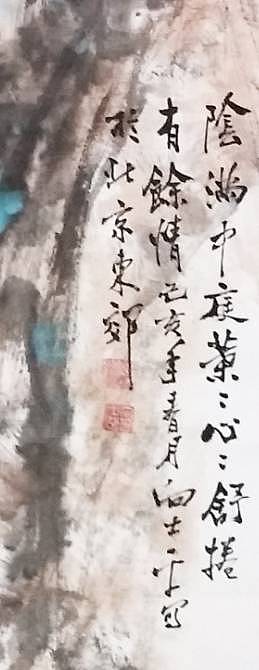 陰滿中庭葉〻心〻舒捲
有餘情己亥年春月向士平寫
於北京東郊